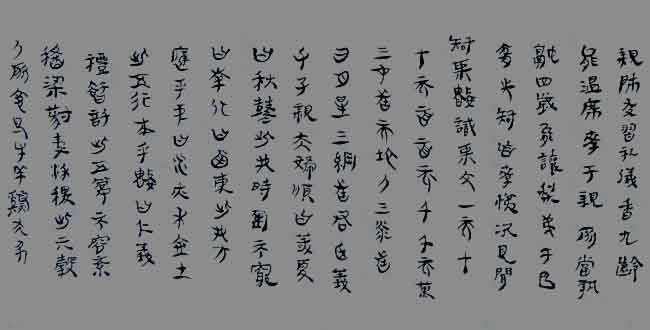 親師友習礼儀香九齡
能溫席孝于親所當執
融四歲能讓梨弟于長
宜先知首孝悌次見聞
知某數識某文一而十
十而百百而千千而萬
三才者天地人三光者
日月星三綱者君臣義
父子親夫婦順曰春夏
曰秋冬此四時運不窮
曰南北曰西東此四方
應乎中曰水火木金土
此五行本乎數曰仁義
禮智信此五常不容紊
稻粱菽麥黍稷此六穀
人所食馬牛羊雞犬豕